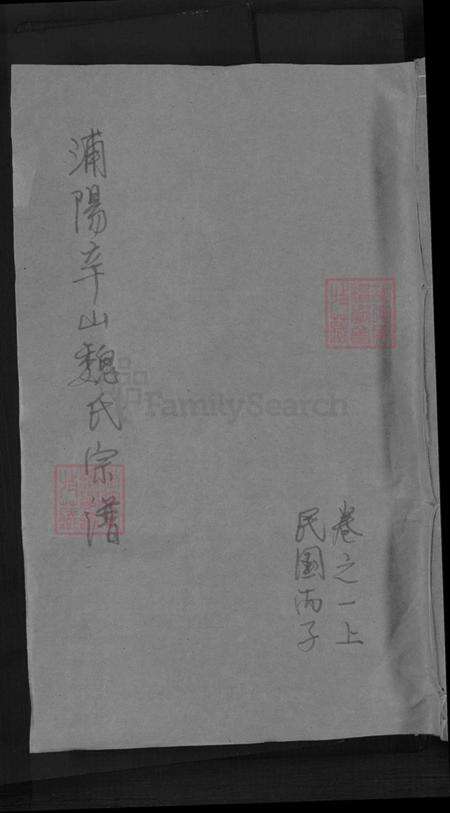 浦陽辛山魏氏宗譜
卷之一上
民國丙子
FamilySearch